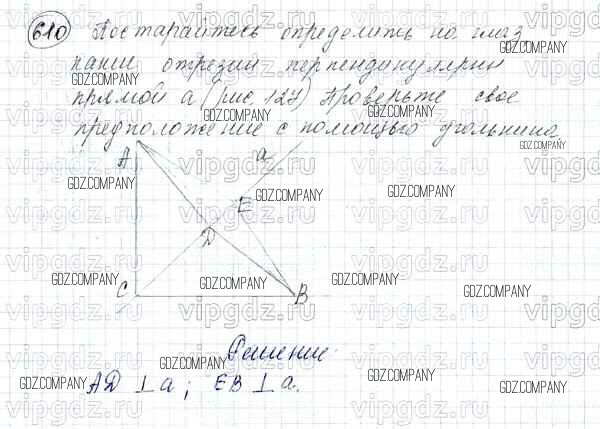 610 Постарайтесь определить на глаз
какие отрезки перпендикулярны
прямой а (рис. 127) Проверьте свое
предположение с помощью угольника.
A
a
E
D
C
B
Решение
AD ⊥ a; EB ⊥ a.
GDZ.COMPANY
vipgdz.ru